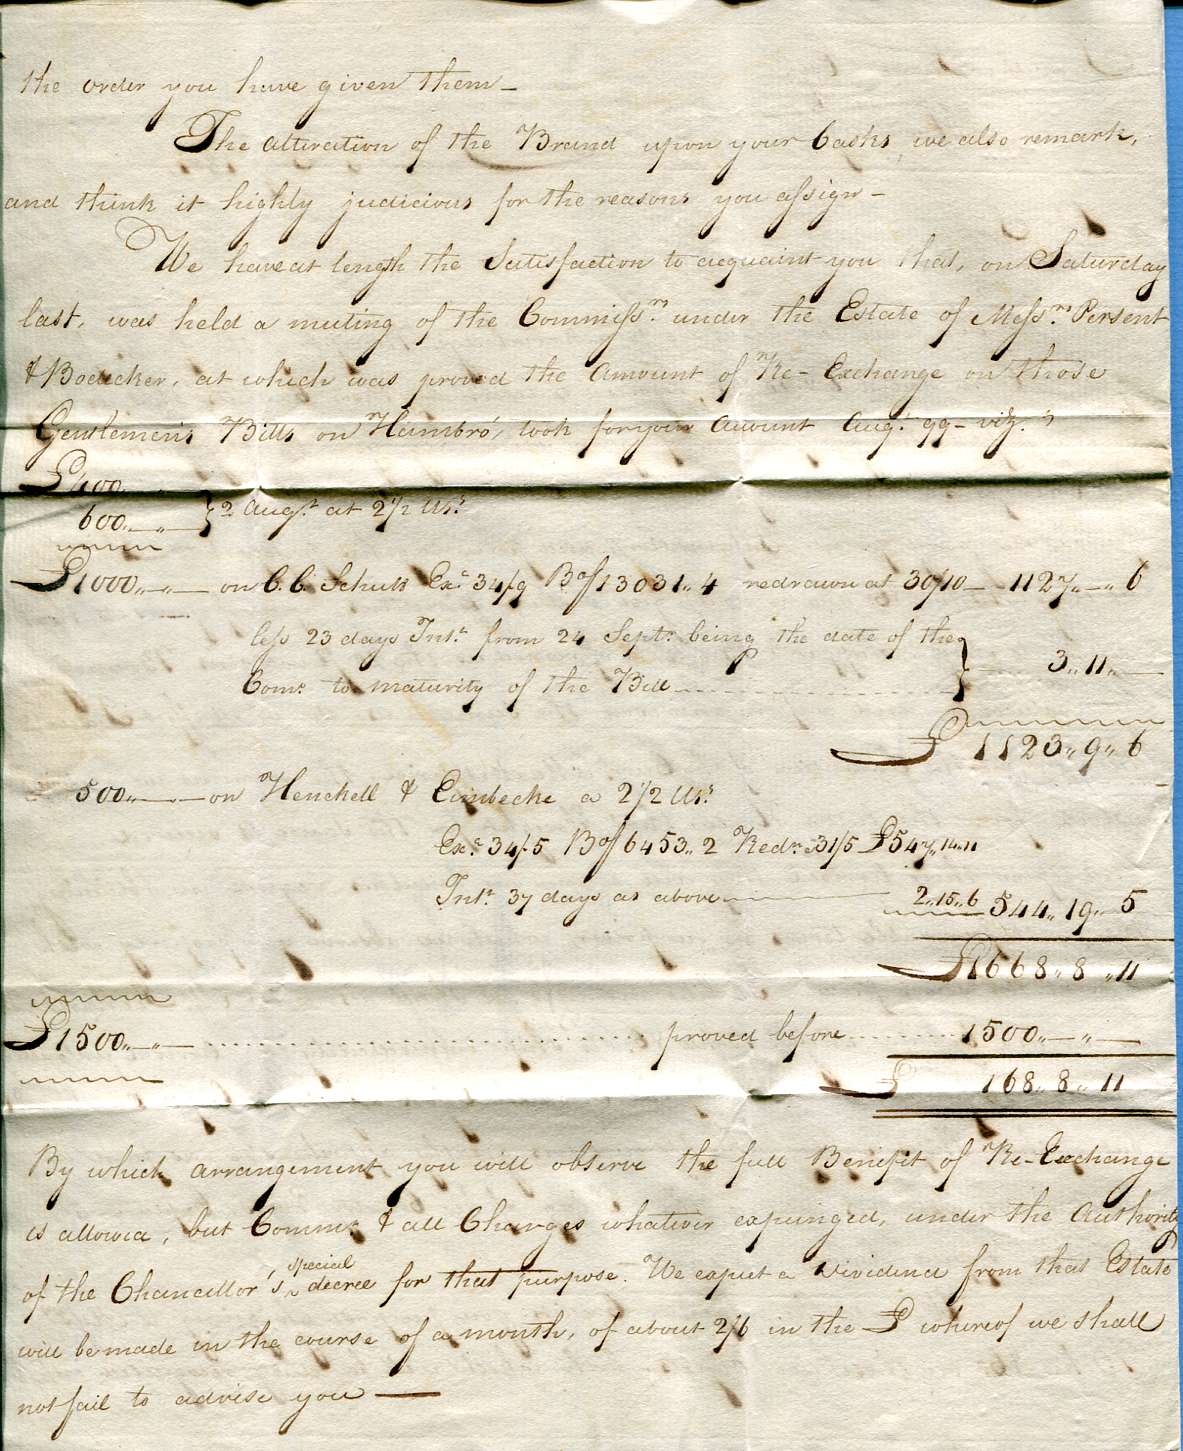 the order you have given them –
The alteration of the Brand upon your Casks, we also remark,
and think it highly judicious for the reasons you assign –
We have at length the Satisfaction to acquaint you that, on Saturday
last, was held a meeting of the Commissrs. under the Estate of Messrs. Persent
& Boedecker, at which was proved the Amount of Re-Exchange on those
Gentlemen's Bills on Hambro', took for your Account Augt. 99 – vizt.
£400 „ – „ –
600 „ – „ – } 2 Augt. at 2 1/2 Us.
£1000 „ – „ – on C. C. Schutt Exc. 34/9 Bof 13031 „ 4 redrawn at 30/10 – 1127 „ – „ 6
less 23 days Intt. from 24 Septr. being the date of the
Coms. to maturity of the Bill } 3 „ 11 „ –
£ 1123 „ 9 „ 6
500 „ – „ – on Henckell & Eimbecke a 2 1/2 Us.
Exc. 34/5 Bof 6453 „ 2 Redn. 31/5 £547 „ 14 „ 11
Intt. 37 days as above – 2 „ 15 „ 6 544 „ 19 „ 5
£1668 „ 8 „ 11
£1500 „ – „ – proved before 1500 „ – „ –
£ 168 „ 8 „ 11
By which arrangement you will observe the full Benefit of Re-Exchange
is allowed, but Commn. & all Charges whatever expunged, under the Authority
of the Chancellor's special decree for that purpose. We expect a Dividend from that Estate
will be made in the course of a month, of about 2/6 in the £ whereof we shall
not fail to advise you –